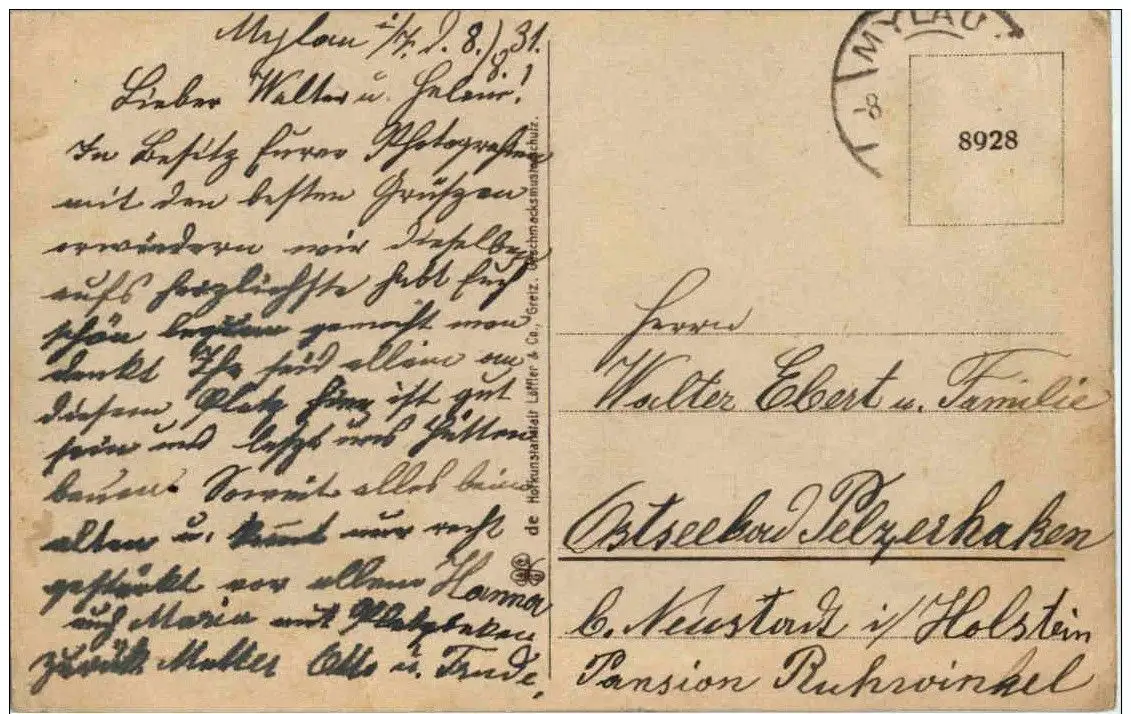 Mylau i/V. d. 8./8. 31.
Lieber Walter u. Helene!
In Besitz Eurer Photografien
mit den besten Grüszen
erwiedern wir dieselben
aufs herzlichste habt Euch
schön bequem gemacht man
denkt Ihr seid allein an
diesem Platz hier ist gut
sein und laszt uns Hütten
bauen. Soweit alles beim
alten u. kommt nur recht
gestärkt vor allem Hanna
auch Maria mit
zurück Mutter Otto u. Trude.
de Hofkunstanstalt Löffler & Co., Greiz. Geschmacksmusterschutz.
MYLAU
8928
Herrn
Walter Ebert u. Familie
Ostseebad Pelzerhaken
b. Neustadt i/Holstein
Pansion Ruhwinkel